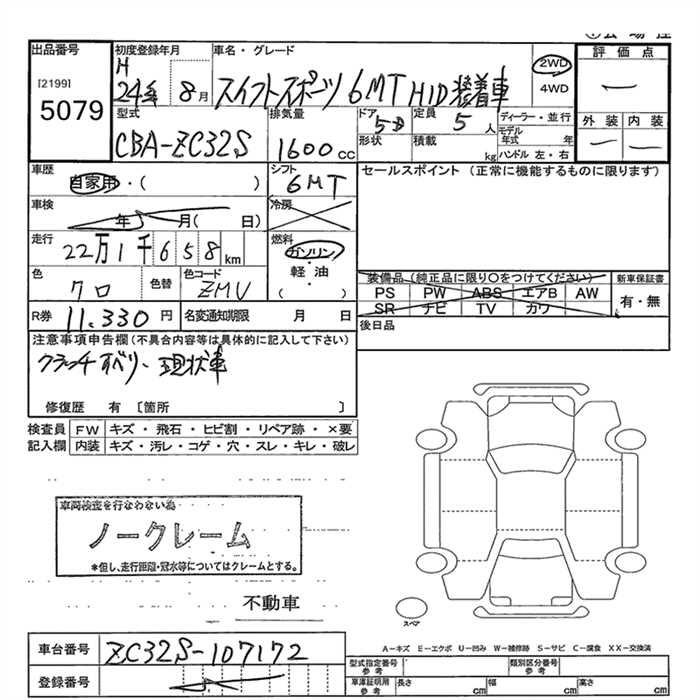 出品番号
[2199]
5079
初度登録年月
H
24年 8月
車名・グレード
スイフトスポーツ 6MT HID装着車
2WD
4WD
評価点
ー
型式
CBA-ZC32S
排気量
1600cc
ドア
5D
形状
定員
5人
積載
kg
ディーラー・並行
モデル
年式 年
ハンドル 左・右
外装 内装
ー ー
車歴
自家用・( )
シフト
6MT
セールスポイント (正常に機能するものに限ります)
車検
年 月( 日)
冷房
走行
22万1千658km
燃料
ガソリン
軽・油
( ・ )
色
クロ
色替
色コード
ZMV
装備品(純正品に限り○をつけてください)
PS PW ABS エアB AW
SR ナビ TV カワ
新車保証書
有・無
R券 11,330円
名変通知期限 月 日
後日品
注意事項申告欄(不具合内容等は具体的に記入して下さい)
クラッチすべり、現状車
修復歴 有 [箇所 ]
検査員 FW キズ・飛石・ヒビ割・リペア跡・×要
記入欄 内装 キズ・汚レ・コゲ・穴・スレ・キレ・破レ
車両検査を行なわない為
ノークレーム
*但し、走行距離・冠水等についてはクレームとする。
不動車
スペア
A-キズ E-エクボ U-凹み W-補修跡 S-サビ C-腐食 XX-交換済
車台番号 ZC32S-107172
登録番号
型式指定番号
参考
類別区分番号
参考
車庫証明用
参考
長さ cm 幅 cm 高さ cm